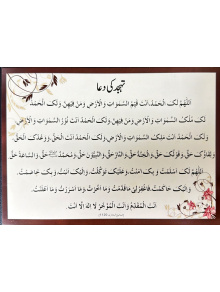 تہجد کی دعا
اللّٰهُمَّ لَكَ الْحَمْدُ اَنْتَ قَيِّمُ السَّمٰوَاتِ وَالْاَرْضِ وَمَنْ فِيْهِنَّ وَلَكَ الْحَمْدُ
لَكَ مُلْكُ السَّمٰوَاتِ وَالْاَرْضِ وَمَنْ فِيْهِنَّ وَلَكَ الْحَمْدُ اَنْتَ نُوْرُ السَّمٰوَاتِ وَالْاَرْضِ
وَلَكَ الْحَمْدُ اَنْتَ مَلِكُ السَّمٰوَاتِ وَالْاَرْضِ وَلَكَ الْحَمْدُ اَنْتَ الْحَقُّ وَوَعْدُكَ الْحَقُّ
وَلِقَاؤُكَ حَقٌّ وَقَوْلُكَ حَقٌّ وَالْجَنَّةُ حَقٌّ وَالنَّارُ حَقٌّ وَالنَّبِيُّوْنَ حَقٌّ وَمُحَمَّدٌ ﷺ حَقٌّ وَالسَّاعَةُ حَقٌّ
اللّٰهُمَّ لَكَ اَسْلَمْتُ وَبِكَ اٰمَنْتُ وَعَلَيْكَ تَوَكَّلْتُ وَاِلَيْكَ اَنَبْتُ وَبِكَ خَاصَمْتُ
وَاِلَيْكَ حَاكَمْتُ فَاغْفِرْلِيْ مَا قَدَّمْتُ وَمَا اَخَّرْتُ وَمَا اَسْرَرْتُ وَمَا اَعْلَنْتُ
اَنْتَ الْمُقَدِّمُ وَاَنْتَ الْمُؤَخِّرُ لَا اِلٰهَ اِلَّا اَنْتَ